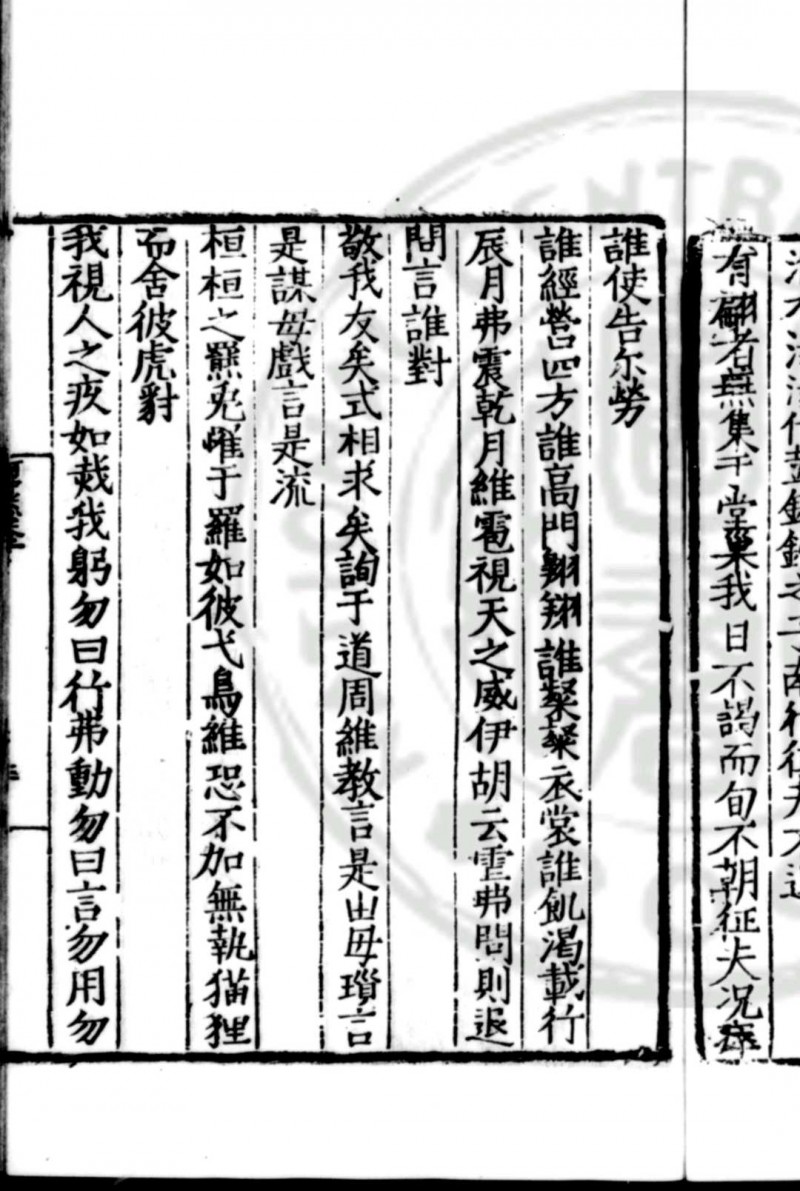 有翩者無集于堂巢我日不謁而旬不朝征夫況瘁
誰使告尔勞
誰經營四方誰高門翱翔誰粲粲衣裳誰飢渴載行
辰月弗震乾月維雹視天之威伊胡云霊弗問則退
問言誰對
敬我友矣式相求矣詢于道周維教言是由毋瑣言
是謀毋戲言是流
桓桓之羆兎嶉于羅如彼弋鳥維恐不加無執猫狸
而舍彼虎豺
我視人之疚如烖我躬勿曰行弗動勿曰言勿用勿